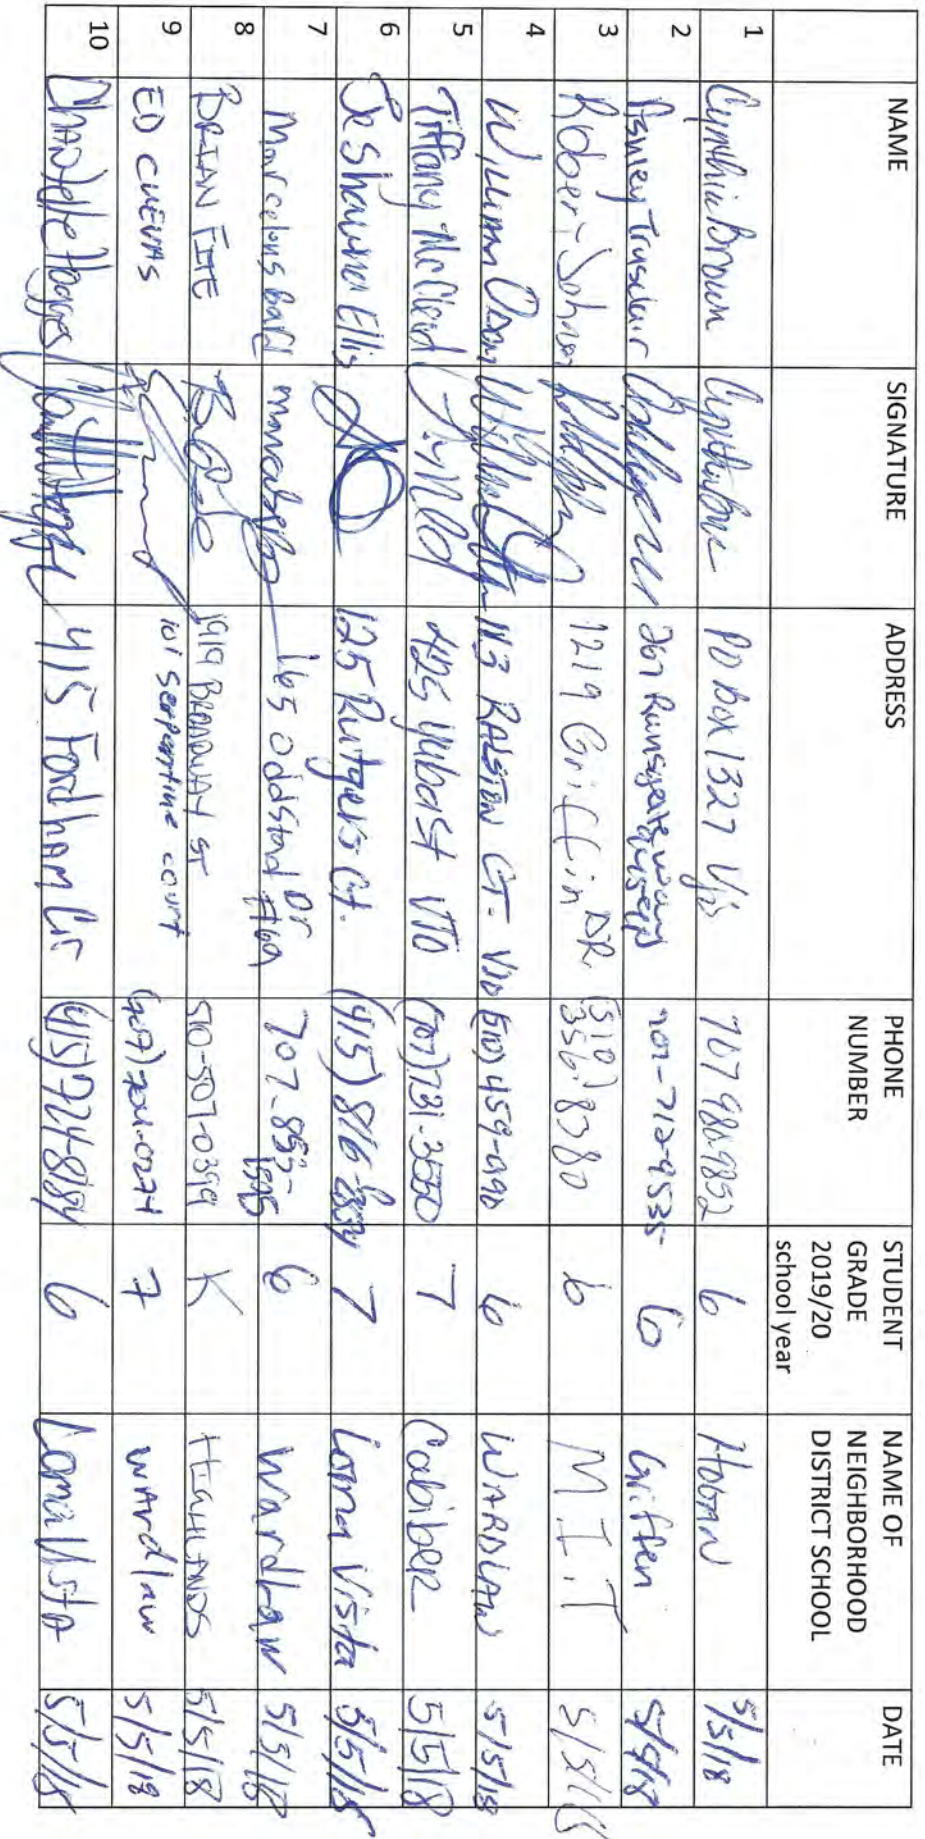 NAME SIGNATURE ADDRESS PHONE NUMBER STUDENT GRADE 2019/20 school year NAME OF NEIGHBORHOOD DISTRICT SCHOOL DATE
1 Cynthia Brown PO box 1327 Vjo 707 980-9852 6 Hogan 5/5/18
2 Ashley 267 707-712-9535 6 Griffen 5/5/18
3 Robert Johnson 1219 Griffin DR. (510) 356-8380 6 M I T 5/5/18
4 William 113 RALSTON CT- VJO (510) 459- 6 WARDLAW 5/5/18
5 Tiffany McCleod 425 Yuba St VJO (707) 731-3550 7 Caliber 5/5/18
6 JeShawna Ellis 125 Rutgers Ct. (415) 816- 7 Loma Vista 5/5/18
7 165 Oddstad Dr #69 707-853- 6 WardLaw 5/5/18
8 BRIAN FITE 1919 BROADWAY ST 510-507-0399 K HIGHLANDS 5/5/18
9 ED CUEVAS 101 Serpentine court (707) 0274 7 Wardlaw 5/5/18
10 Hodges 415 Fordham Cir (415) 724-8184 6 Loma Vista 5/5/18